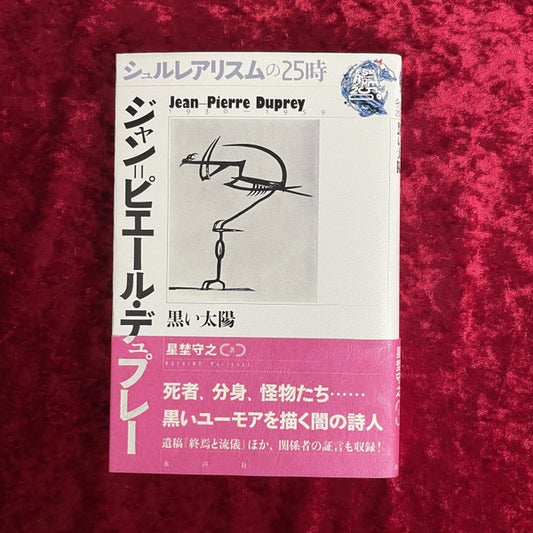 シュルレアリスムの25時
Jean-Pierre Duprey
1930—1959
ジャン=ピエール・デュプレー
黒い太陽
星埜守之 著
HOSHINO Moriyuki
死者、分身、怪物たち……
黒いユーモアを描く闇の詩人
遺稿「終焉と流儀」ほか、関係者の証言も収録!
水声社
黒い太陽
星埜守之